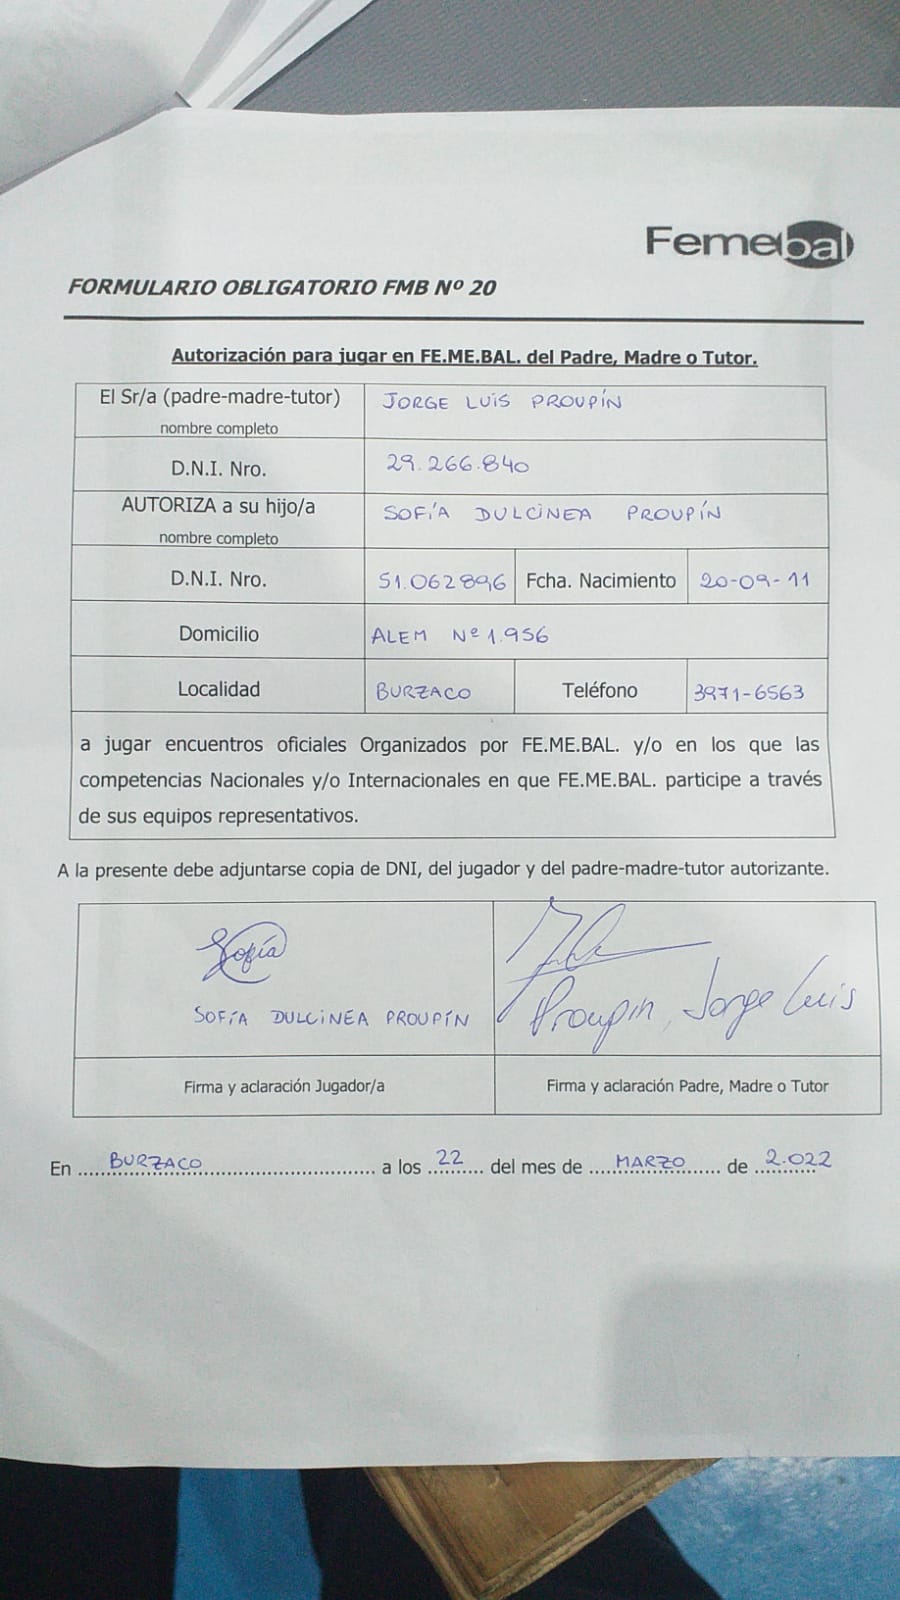 Femebal
FORMULARIO OBLIGATORIO FMB Nº 20
Autorización para jugar en FE.ME.BAL. del Padre, Madre o Tutor.
El Sr/a (padre-madre-tutor) JORGE LUIS PROUPÍN
nombre completo
D.N.I. Nro. 29.266.840
AUTORIZA a su hijo/a SOFÍA DULCINEA PROUPÍN
nombre completo
D.N.I. Nro. 51.062896 Fcha. Nacimiento 20-09-11
Domicilio ALEM Nº 1.956
Localidad BURZACO Teléfono 3971-6563
a jugar encuentros oficiales Organizados por FE.ME.BAL. y/o en los que las
competencias Nacionales y/o Internacionales en que FE.ME.BAL. participe a través
de sus equipos representativos.
A la presente debe adjuntarse copia de DNI, del jugador y del padre-madre-tutor autorizante.
Sofía
SOFÍA DULCINEA PROUPÍN Proupin, Jorge Luis
Firma y aclaración Jugador/a Firma y aclaración Padre, Madre o Tutor
En BURZACO a los 22 del mes de MARZO de 2.022